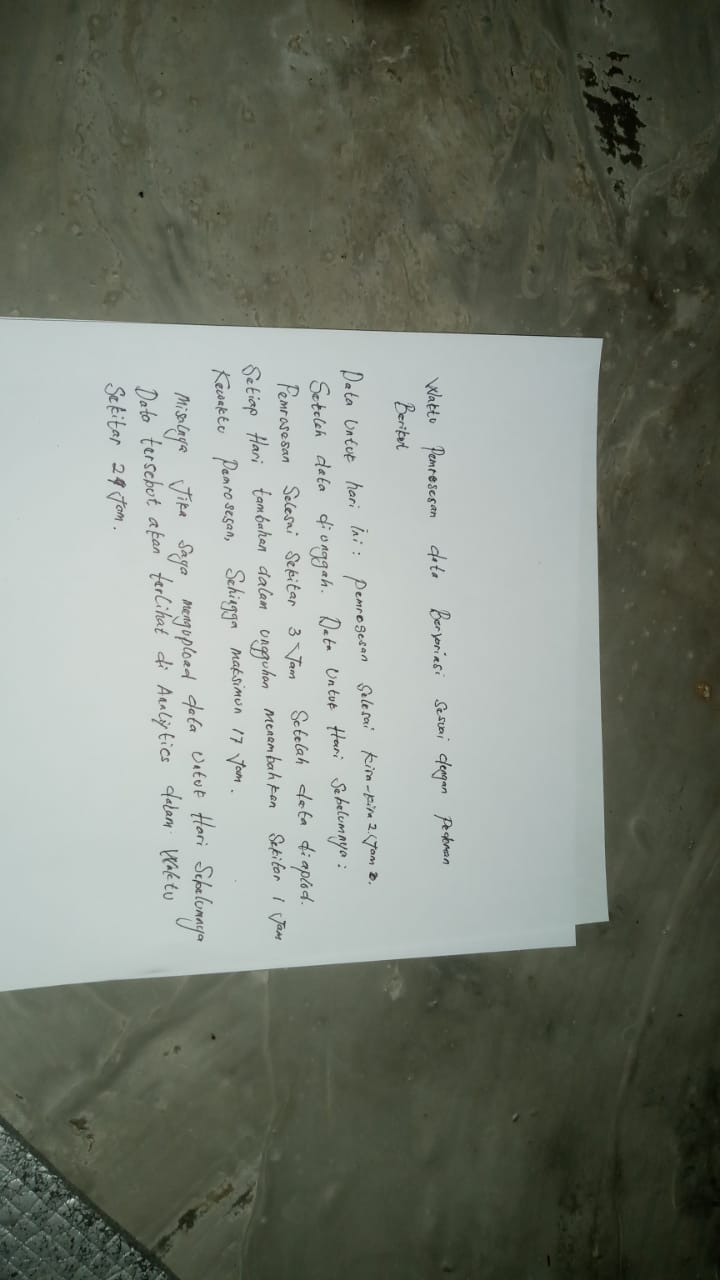 Waktu Pemrosesan data Bervariasi Sesuai dengan Pedoman
Berikut
Data Untuk hari ini : pemrosesan Selesai kira-kira 2 Jam
Setelah data diunggah. Data Untuk Hari Sebelumnya :
Pemrosesan Selesai Sekitar 3 Jam Setelah data diaplod.
Setiap Hari tambahan dalam unggahan menambahkan Sekitar 1 Jam
Kewaktu Pemrosesan, Sehingga maksimun 17 Jam.
misalnya Jika saya mengupload data Untuk Hari Sebelumnya
Data tersebut akan terlihat di Analytics dalam Waktu
Sekitar 24 Jam.